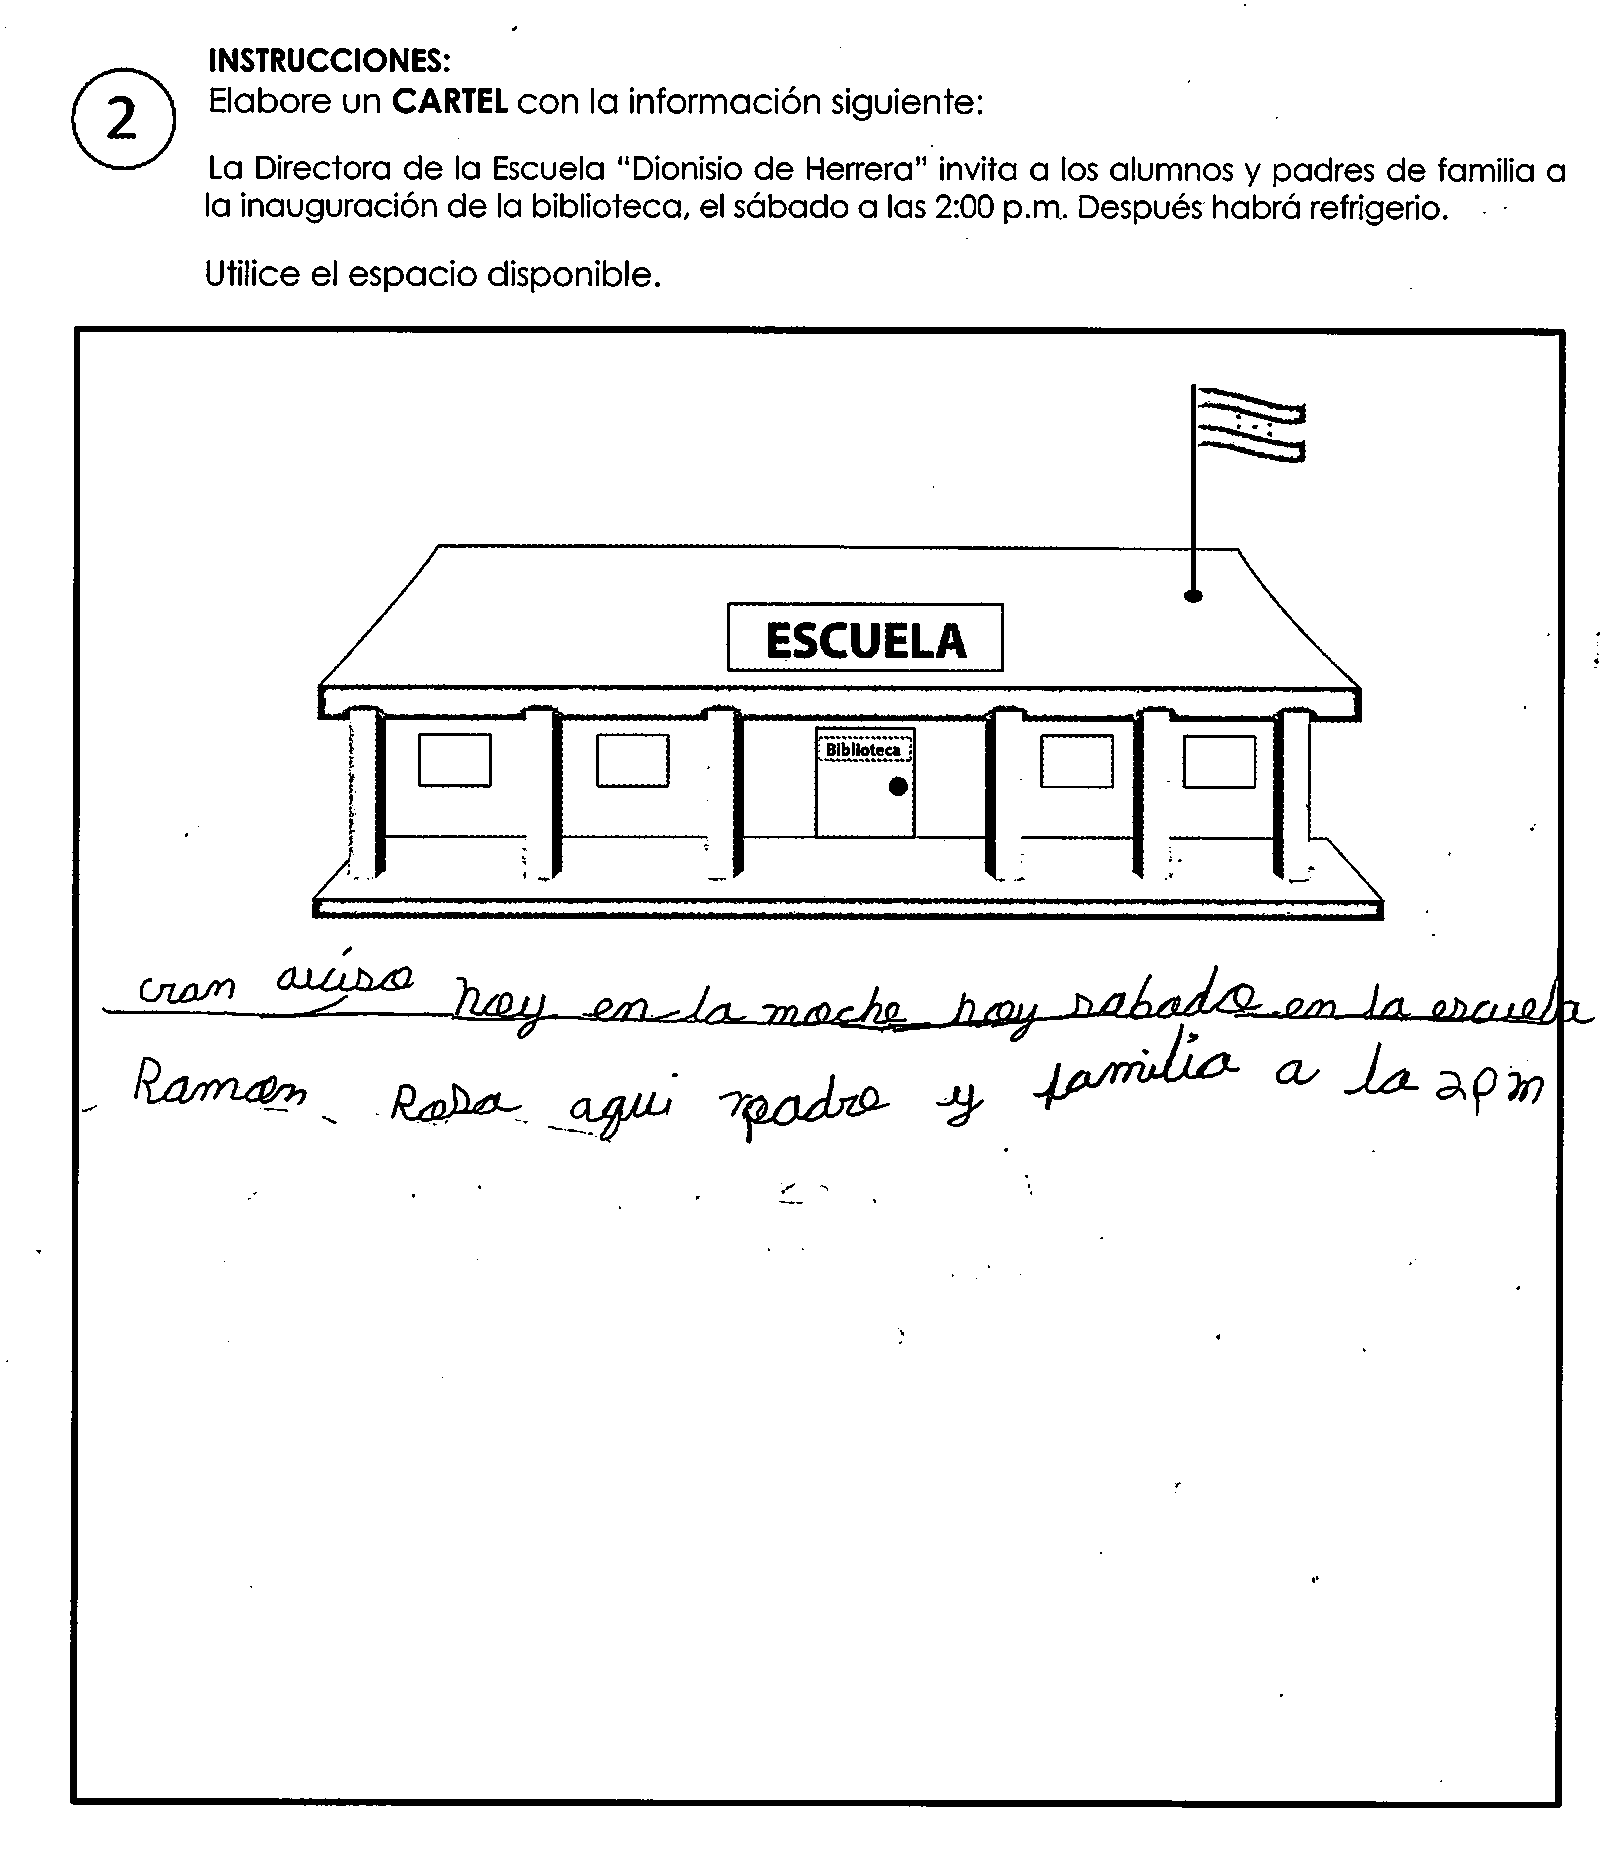 INSTRUCCIONES:
2
Elabore un CARTEL con la información siguiente:
La Directora de la Escuela "Dionisio de Herrera" invita a los alumnos y padres de familia a
la inauguración de la biblioteca, el sábado a las 2:00 p.m. Después habrá refrigerio.
Utilice el espacio disponible.
ESCUELA
Biblioteca
cran aviso hoy en la noche hoy sabado en la escuela
Ramon Rosa aqui padre y familia a la 2pm